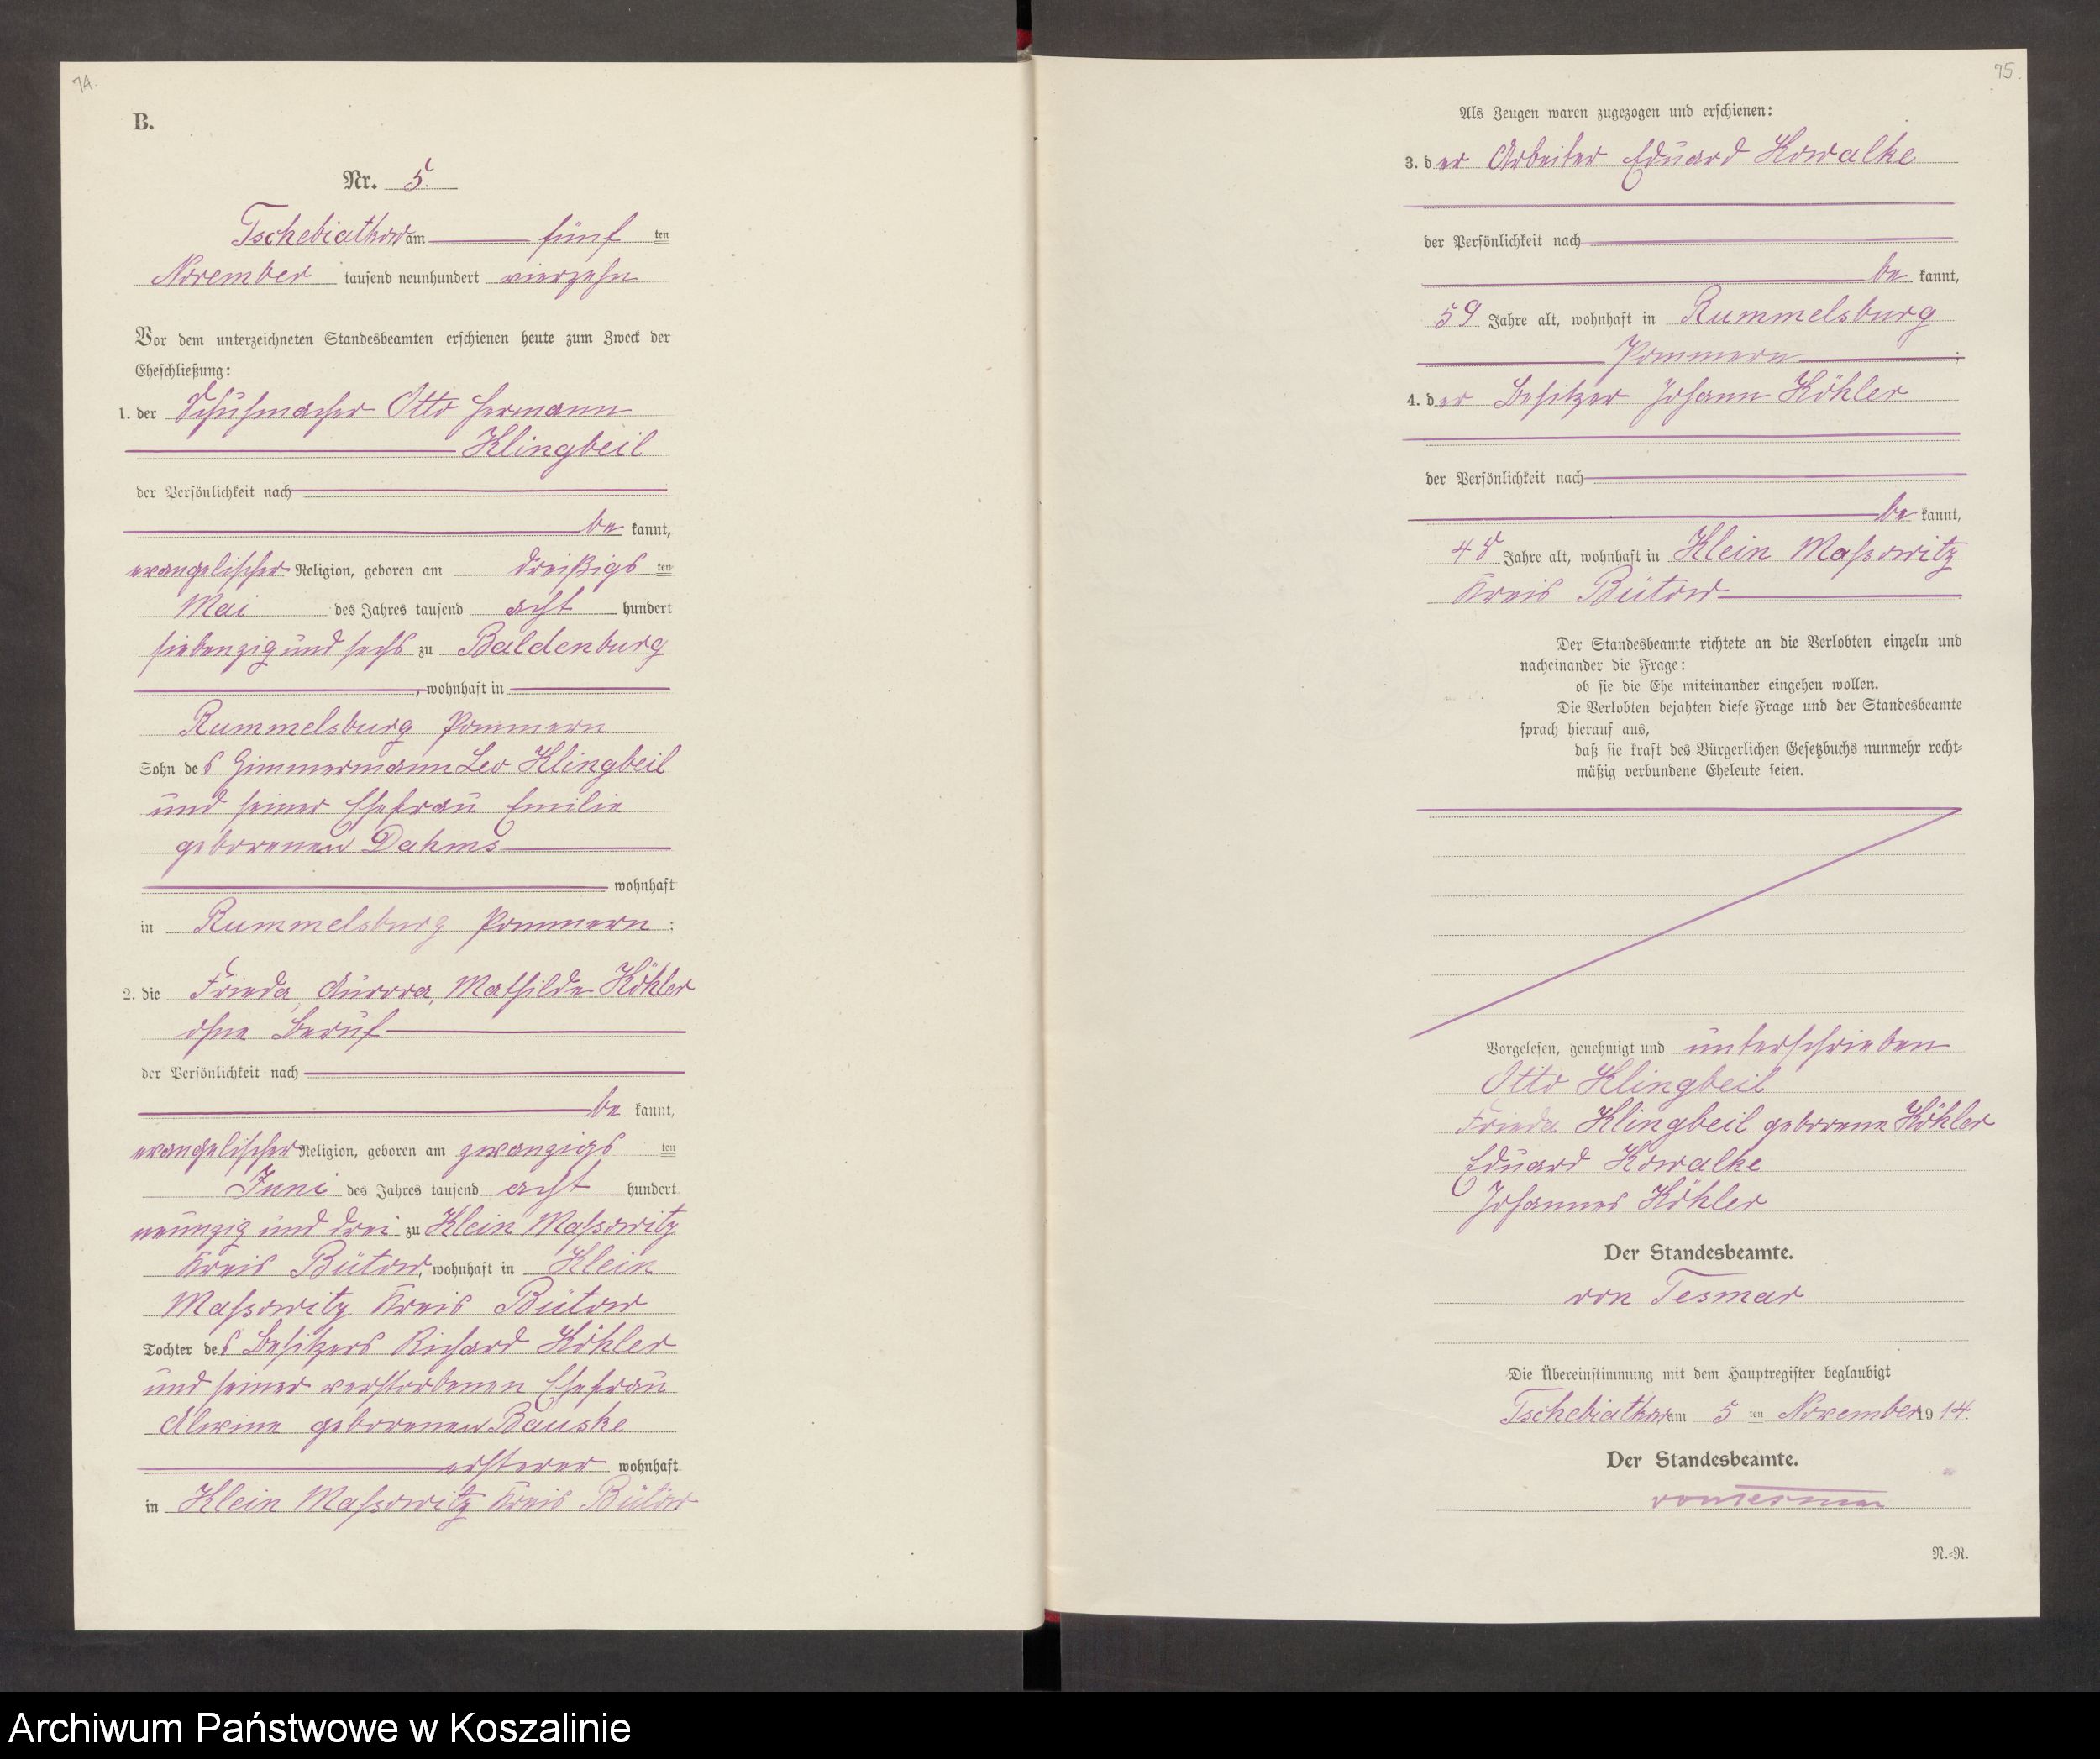 74.
B.
Nr. 5.
Tschebiatkow am fünf ten
November tausend neunhundert vierzehn
Vor dem unterzeichneten Standesbeamten erschienen heute zum Zweck der
Eheschließung:
1. der Schuhmacher Otto Hermann
Klingbeil
der Persönlichkeit nach
be kannt,
evangelischer Religion, geboren am dreißigs ten
Mai des Jahres tausend acht hundert
siebenzig und sechs zu Baldenburg
, wohnhaft in
Rummelsburg Pommern
Sohn des Zimmermann Leo Klingbeil
und seiner Ehefrau Emilie
geborenen Dahms
wohnhaft
in Rummelsburg Pommern ;
2. die Frieda, Aurora, Mathilde Köhler
ohne Beruf
der Persönlichkeit nach
be kannt,
evangelischer Religion, geboren am zwanzigs ten
Juni des Jahres tausend acht hundert
neunzig und drei zu Klein Massowitz
Kreis Bütow, wohnhaft in Klein
Massowitz Kreis Bütow
Tochter des Besitzers Richard Köhler
und seiner verstorbenen Ehefrau
Alwine geborenen Bauske
ersterer wohnhaft
in Klein Massowitz Kreis Bütow
75.
Als Zeugen waren zugezogen und erschienen:
3. der Arbeiter Eduard Kowalke
der Persönlichkeit nach
be kannt,
59 Jahre alt, wohnhaft in Rummelsburg
Pommern ;
4. der Besitzer Johann Köhler
der Persönlichkeit nach
be kannt,
48 Jahre alt, wohnhaft in Klein Massowitz
Kreis Bütow
Der Standesbeamte richtete an die Verlobten einzeln und
nacheinander die Frage:
ob sie die Ehe miteinander eingehen wollen.
Die Verlobten bejahten diese Frage und der Standesbeamte
sprach hierauf aus,
daß sie kraft des Bürgerlichen Gesetzbuchs nunmehr recht-
mäßig verbundene Eheleute seien.
Vorgelesen, genehmigt und unterschrieben
Otto Klingbeil
Frieda Klingbeil geborene Köhler
Eduard Kowalke
Johannes Köhler
Der Standesbeamte.
von Tesmar
Die Übereinstimmung mit dem Hauptregister beglaubigt
Tschebiatkow am 5 ten November 19 14.
Der Standesbeamte.
von Tesmar
N.-R.
Archiwum Państwowe w Koszalinie